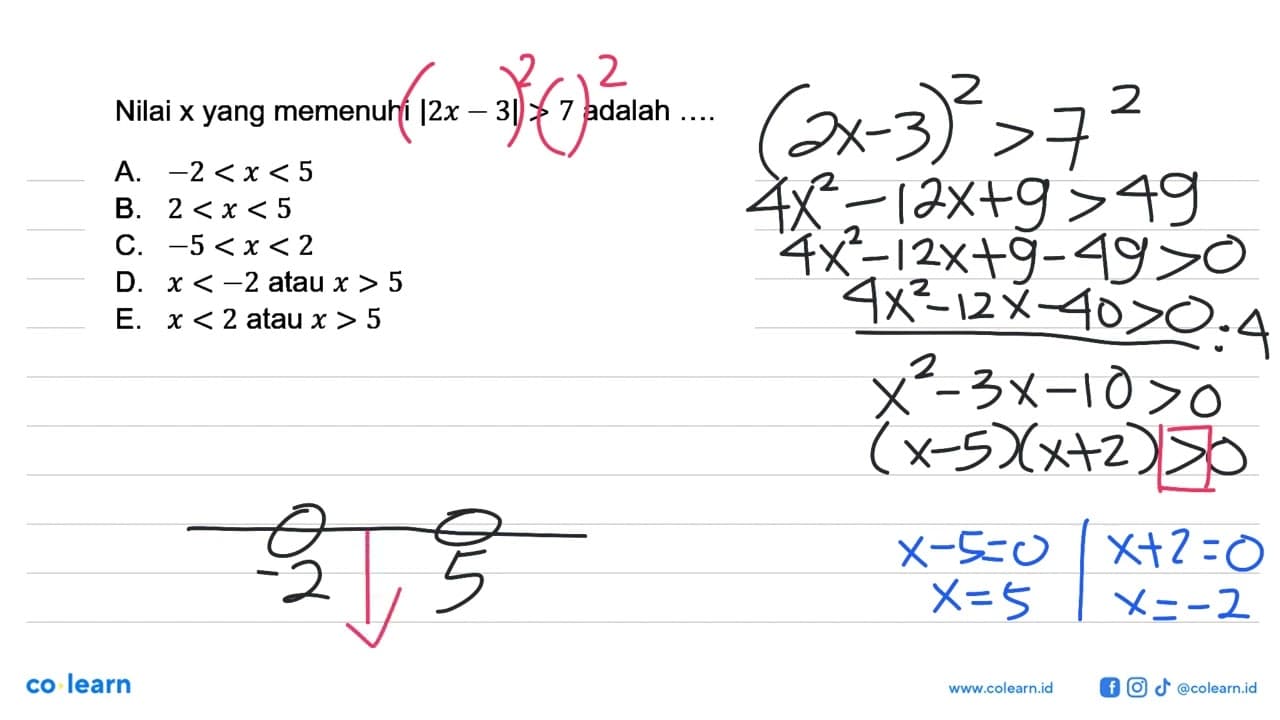 Nilai x yang memenuhi |2x − 3| > 7 adalah ....
( )² ( )²
A. −2 < x < 5
B. 2 < x < 5
C. −5 < x < 2
D. x < −2 atau x > 5
E. x < 2 atau x > 5
(2x-3)² > 7²
4x² - 12x + 9 > 49
4x² - 12x + 9 - 49 > 0
4x² - 12x - 40 > 0 : 4
x² - 3x - 10 > 0
(x-5)(x+2) > 0
x-5=0 | x+2=0
x=5 | x=-2
-2 5
co learn
www.colearn.id
@colearn.id